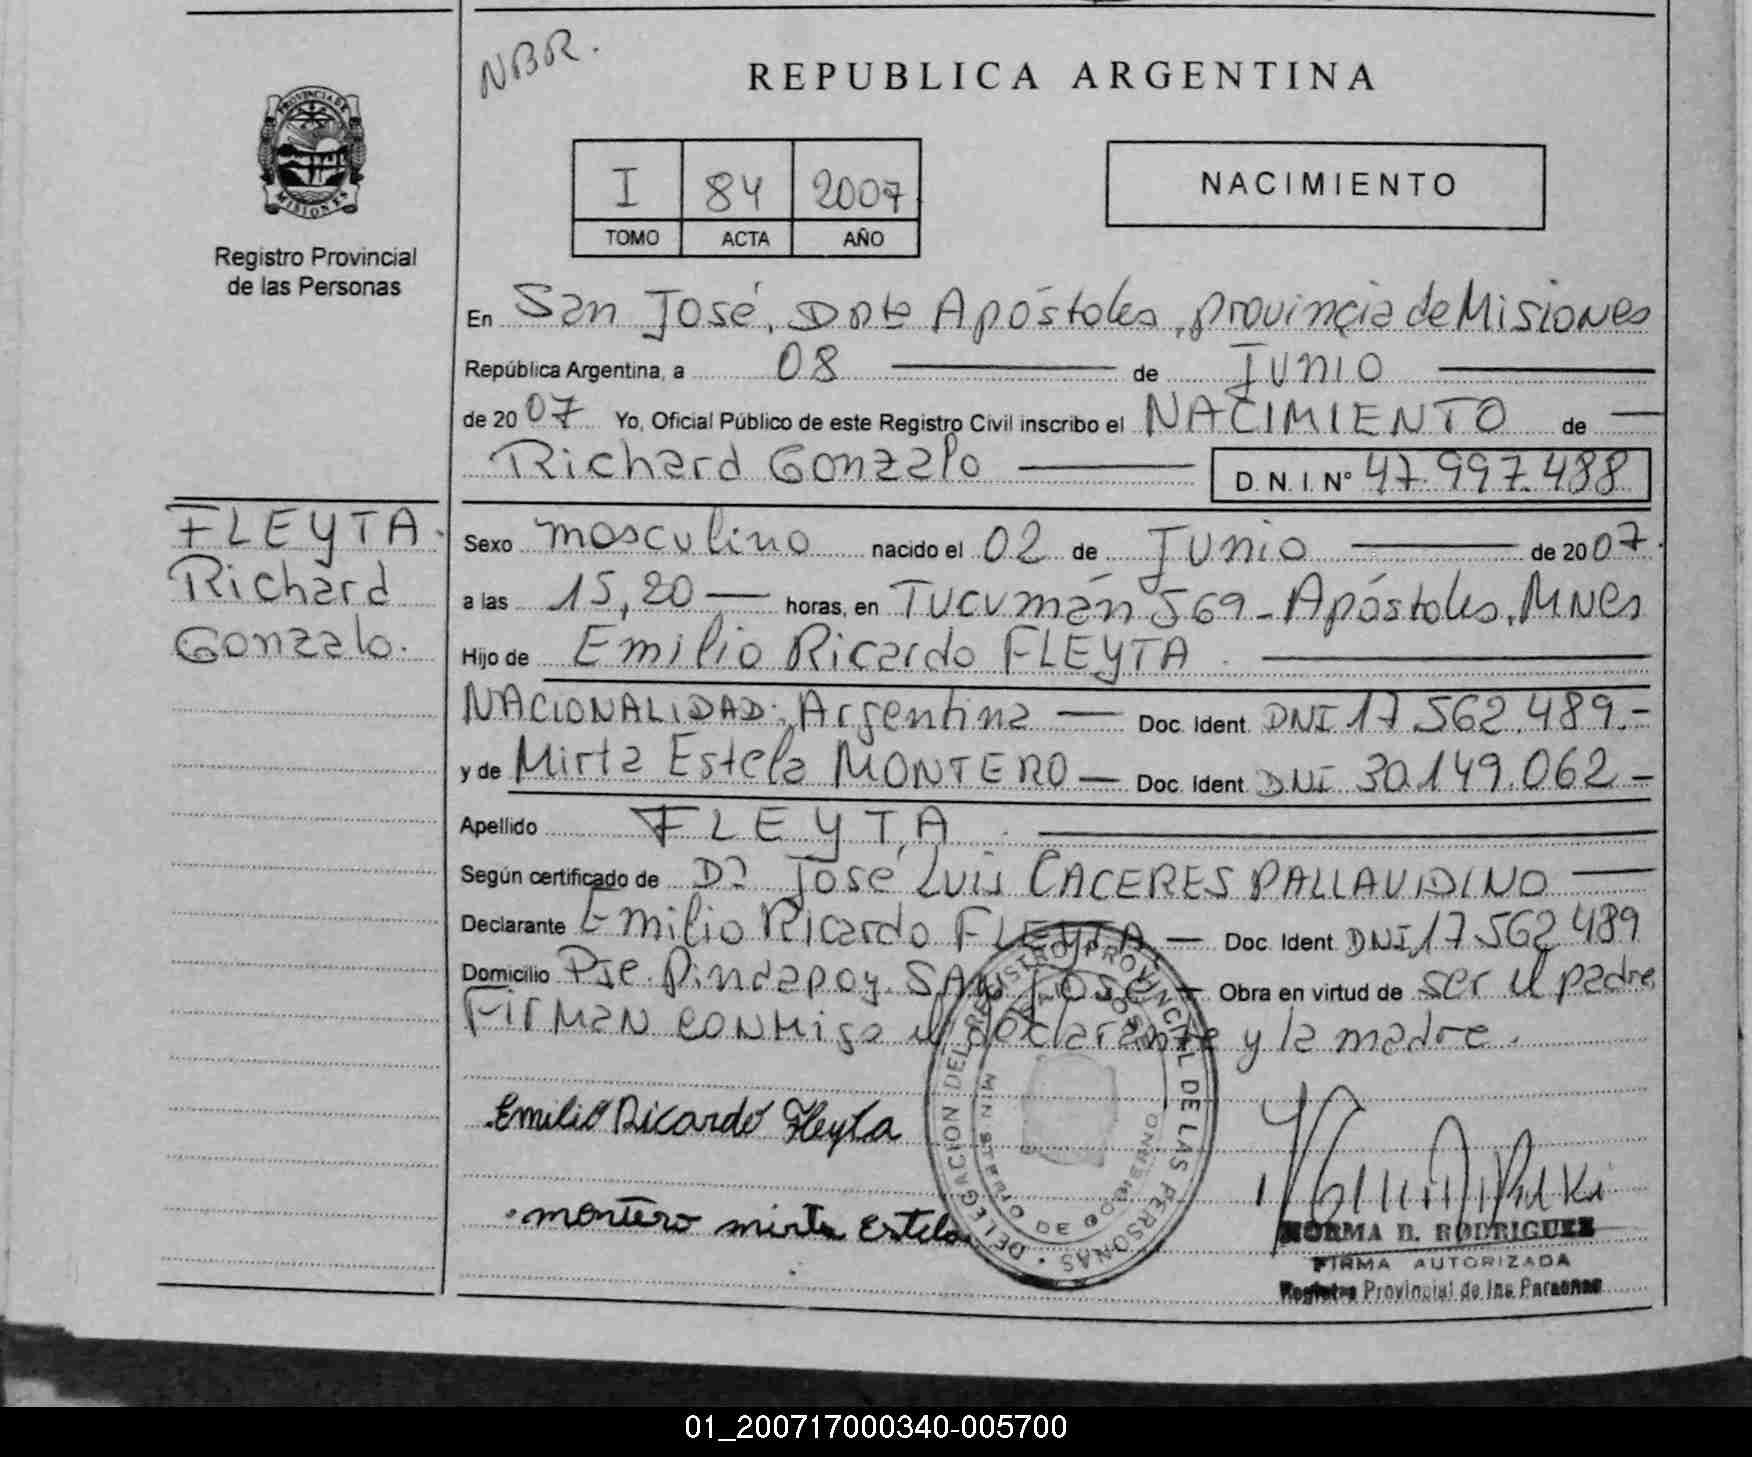 NBR.
REPUBLICA ARGENTINA
PROVINCIA DE
MISIONES
Registro Provincial
de las Personas
I 84 2007
TOMO ACTA AÑO
NACIMIENTO
En San José, Dpto Apóstoles, provincia de Misiones
República Argentina, a 08 de Junio
de 2007 Yo, Oficial Público de este Registro Civil inscribo el NACIMIENTO de
Richard Gonzalo D.N.I. Nº 47.997.488
FLEYTA.
Richard
Gonzalo.
Sexo masculino nacido el 02 de Junio de 2007.
a las 15,20 horas, en Tucumán 569 - Apóstoles, Mnes
Hijo de Emilio Ricardo FLEYTA.
NACIONALIDAD: Argentina Doc. Ident. DNI 17.562.489.-
y de Mirta Estela MONTERO Doc. Ident. DNI 30.149.062 -
Apellido FLEYTA.
Según certificado de Dr José Luis CACERES PALLAVIDINO
Declarante Emilio Ricardo FLEYTA - Doc. Ident. DNI 17 562 489
Domicilio Pje. Pindapoy. SAN JOSÉ - Obra en virtud de ser el padre
Firman conmigo el declarante y la madre.
DELEGACION DEL REGISTRO PROVINCIAL DE LAS PERSONAS
SAN JOSE
MINISTERIO DE GOBIERNO
Emilio Ricardo Fleyta
montero mirta Estela
NORMA B. RODRIGUEZ
FIRMA AUTORIZADA
Registro Provincial de las Personas
01_200717000340-005700